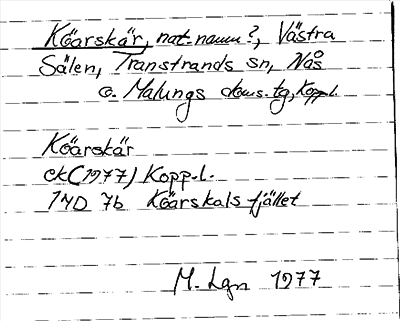 Köarskär, nat.namn?, Västra
Sälen, Transtrands sn, Nås
o. Malungs doms.tg, Kopp.l.
Köarskär
ek (1977) Kopp.l.
14D 7b Köarskalsfjället
M. Lgn 1977